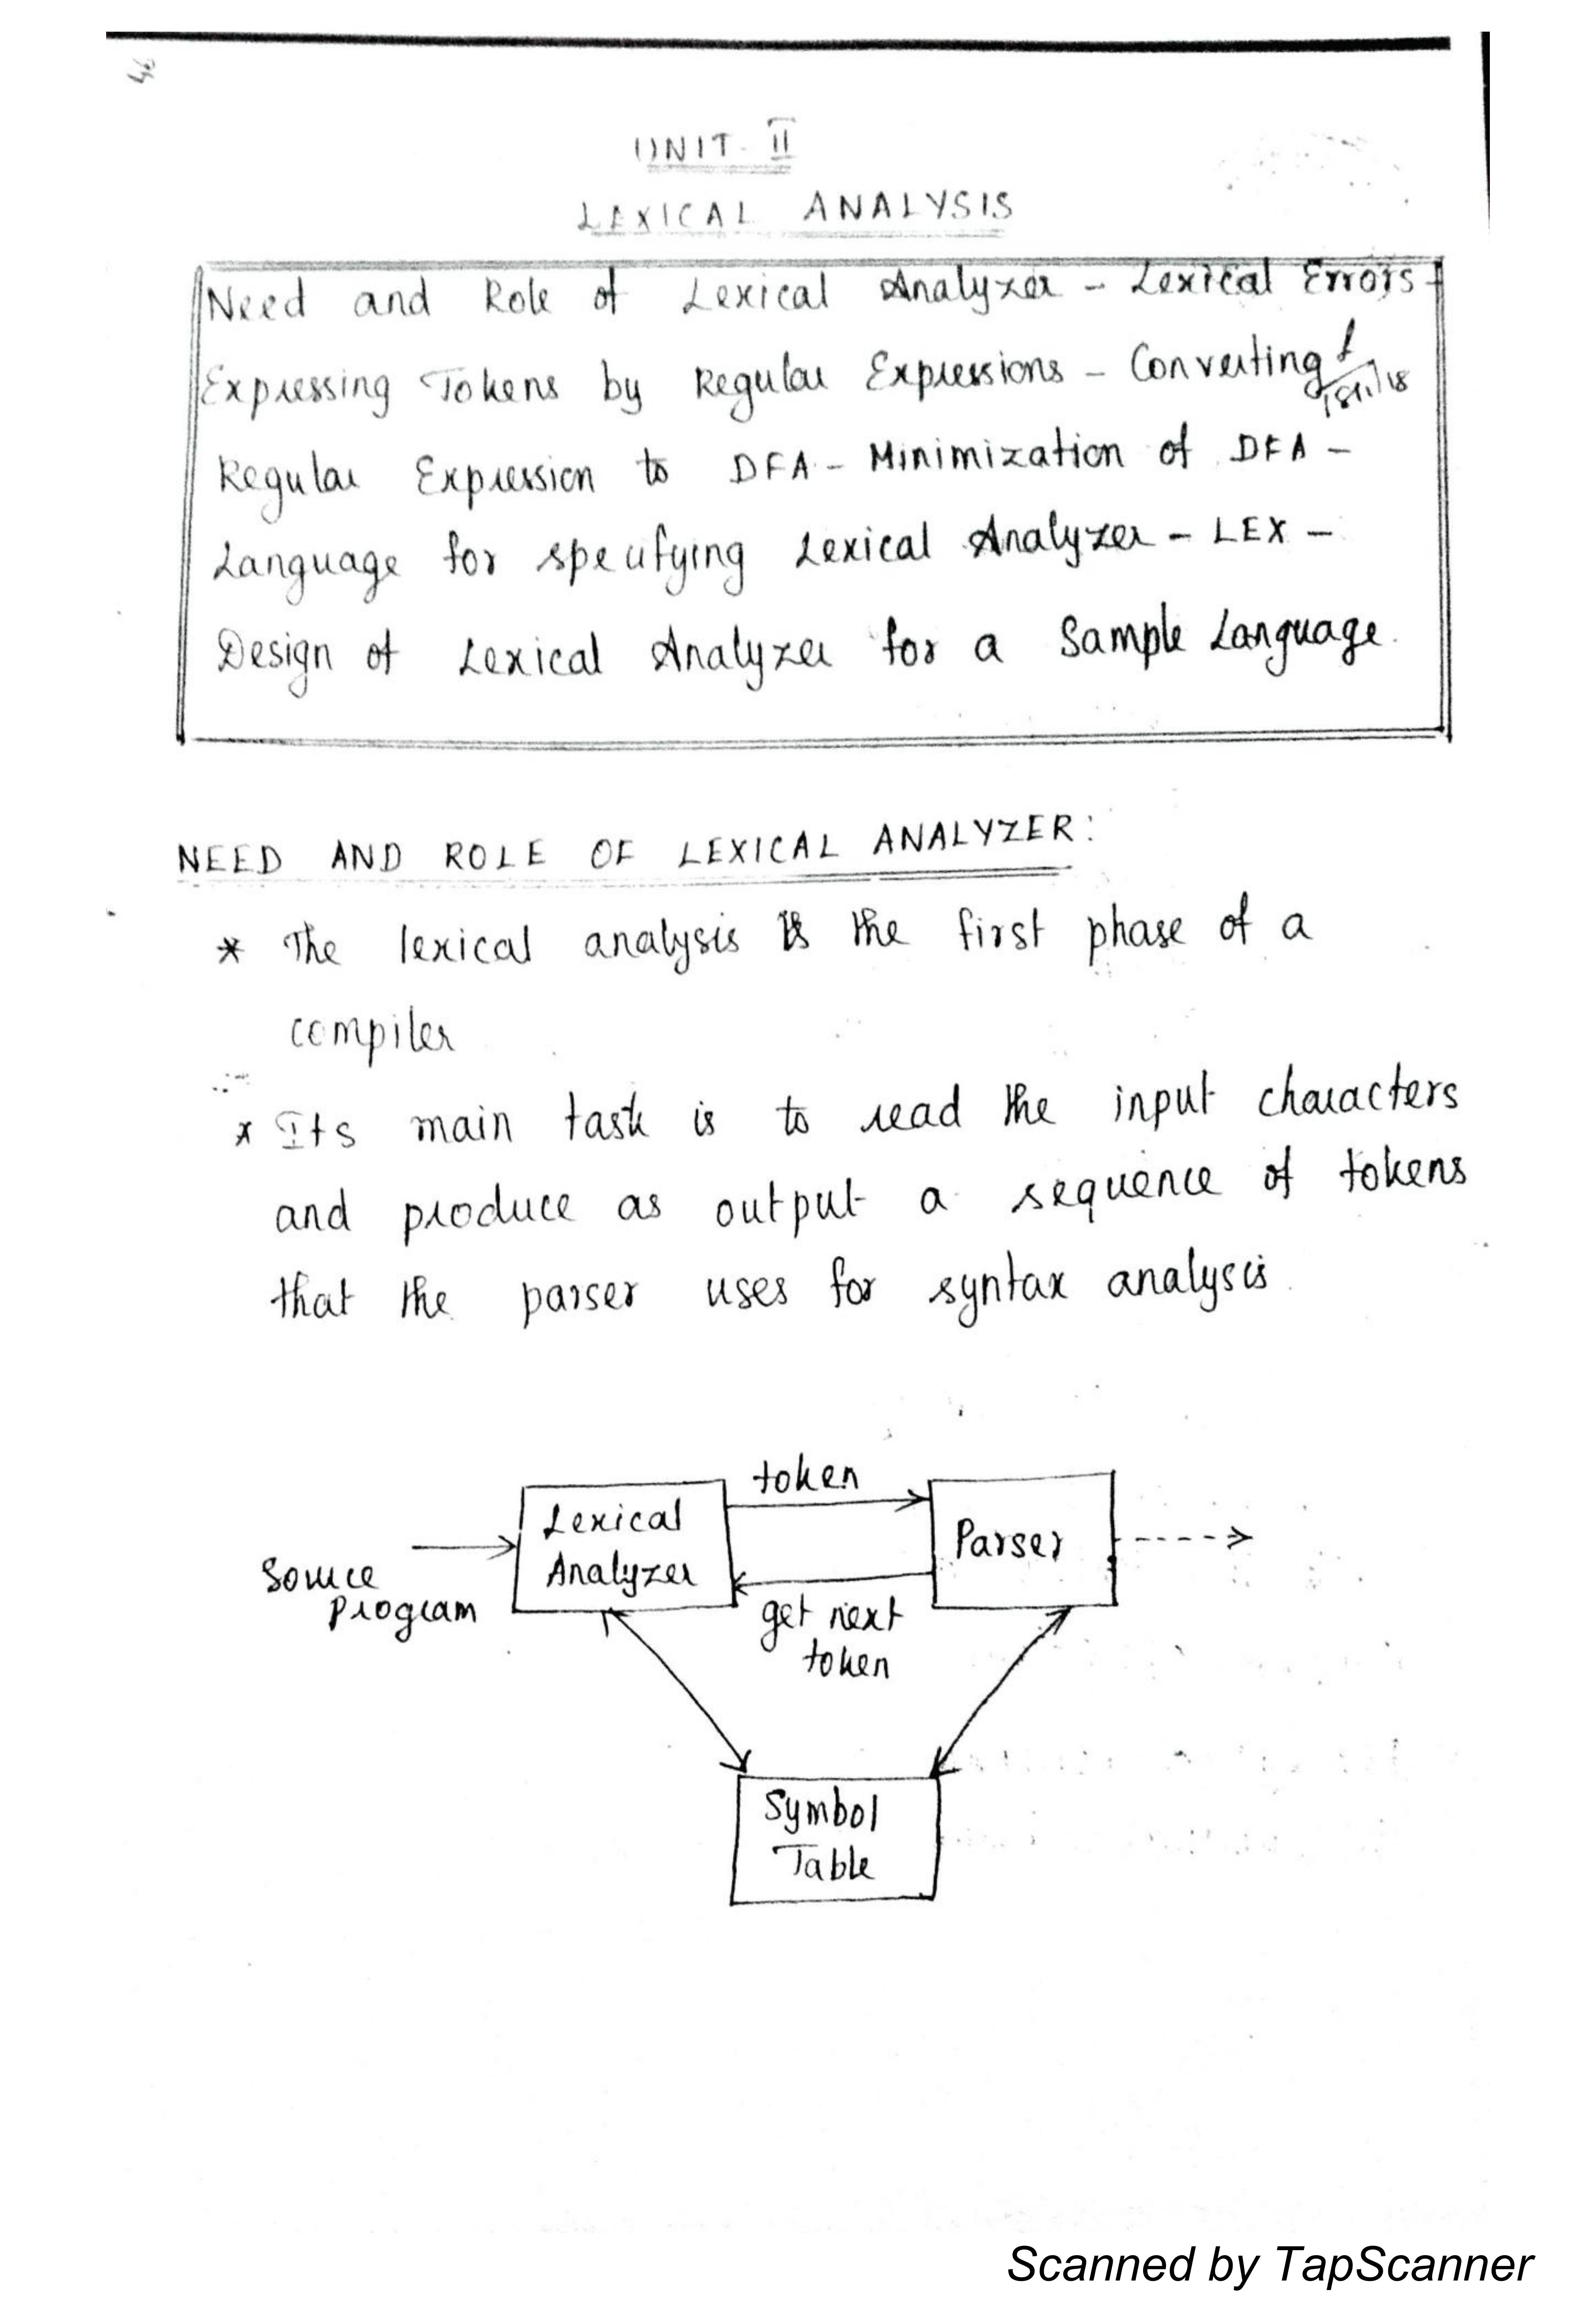 UNIT - II
LEXICAL ANALYSIS
Need and Role of Lexical Analyzer - Lexical Errors -
Expressing Tokens by Regular Expressions - Converting
Regular Expression to DFA - Minimization of DFA -
Language for specifying Lexical Analyzer - LEX -
Design of Lexical Analyzer for a Sample Language.
NEED AND ROLE OF LEXICAL ANALYZER:
* The lexical analysis is the first phase of a
compiler
* Its main task is to read the input characters
and produce as output a sequence of tokens
that the parser uses for syntax analysis.
token
Lexical
Analyzer
Parser
Source
Program
get next
token
Symbol
Table
Scanned by TapScanner